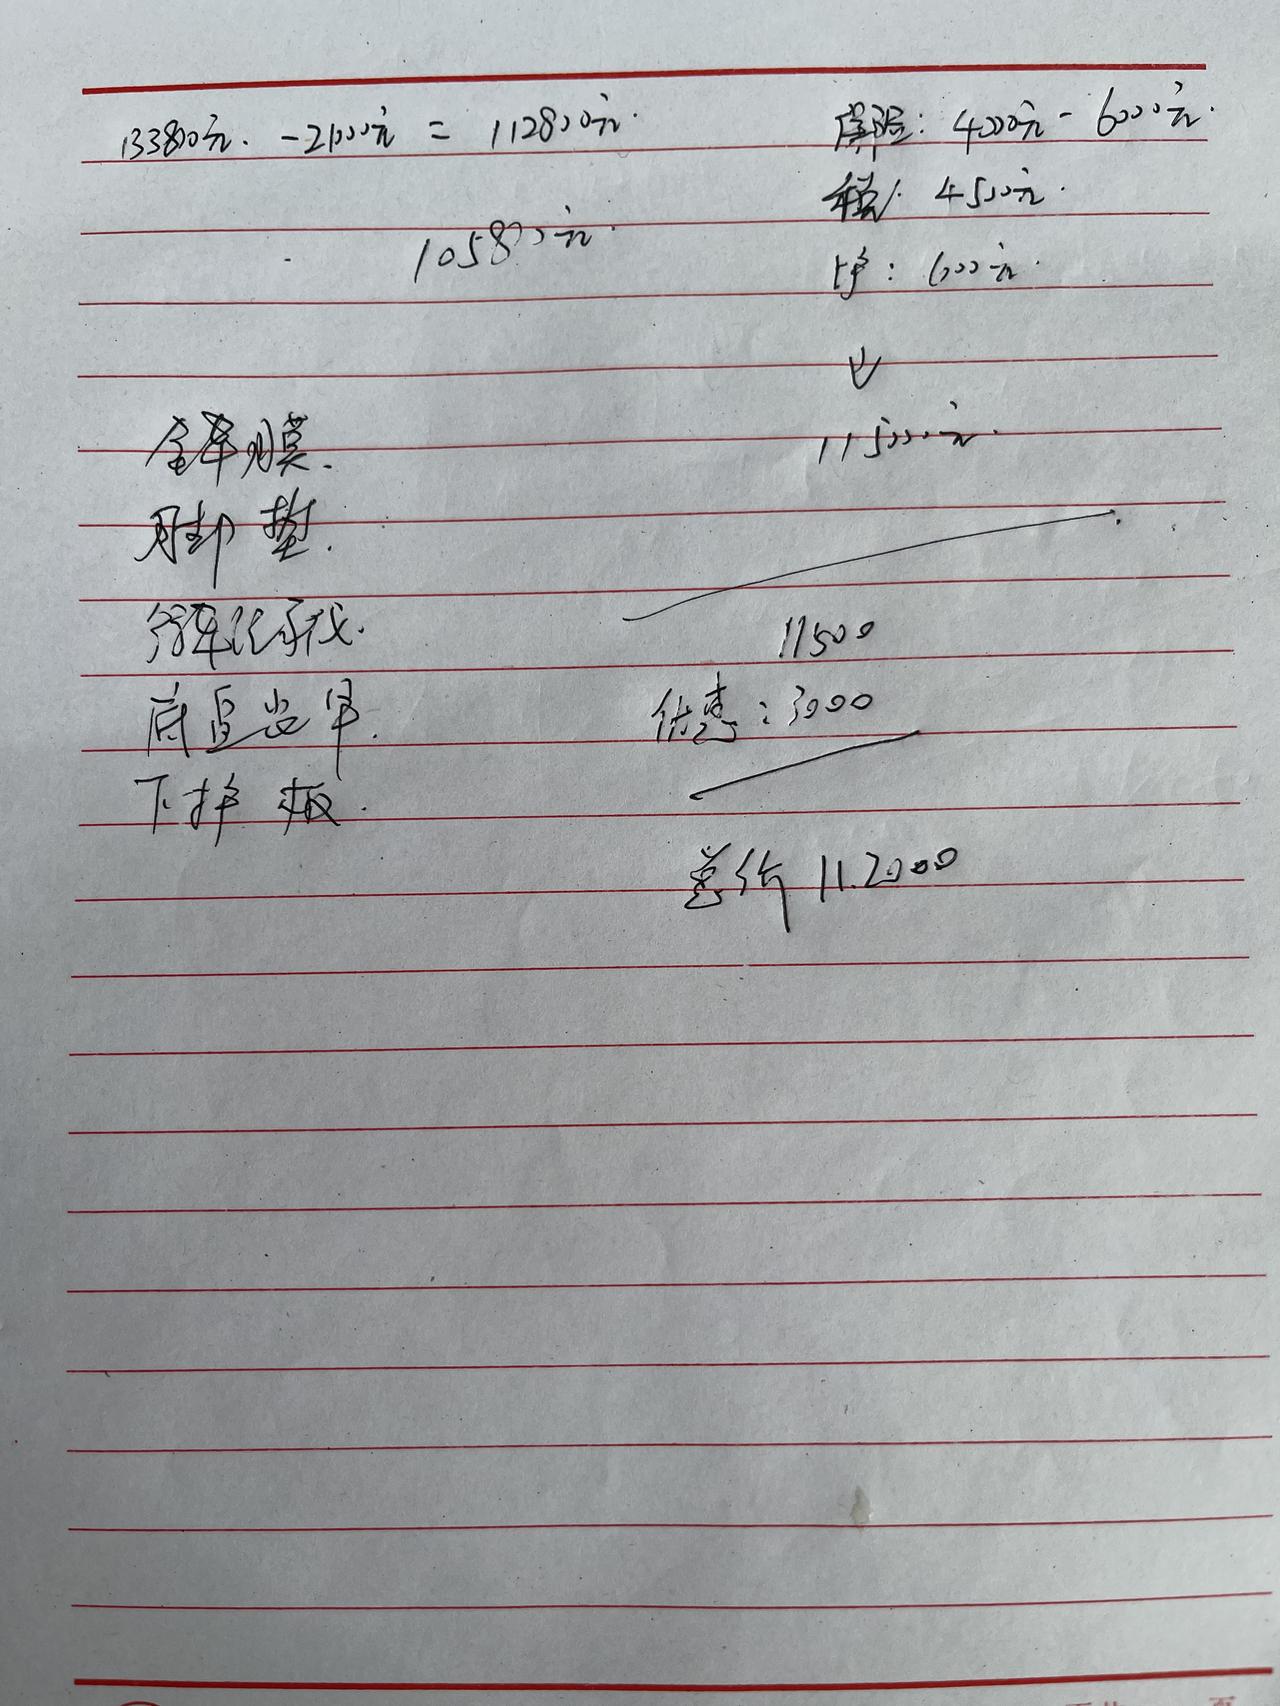 133800元. -21000元 = 112800元.
105800元.
保险: 4000元 - 6000元.
税: 4500元.
户: 600元.
115000元.
全车膜.
脚垫.
行车记录仪.
底盘装甲.
下护板.
11500
优惠: 3000
总价 11.2000